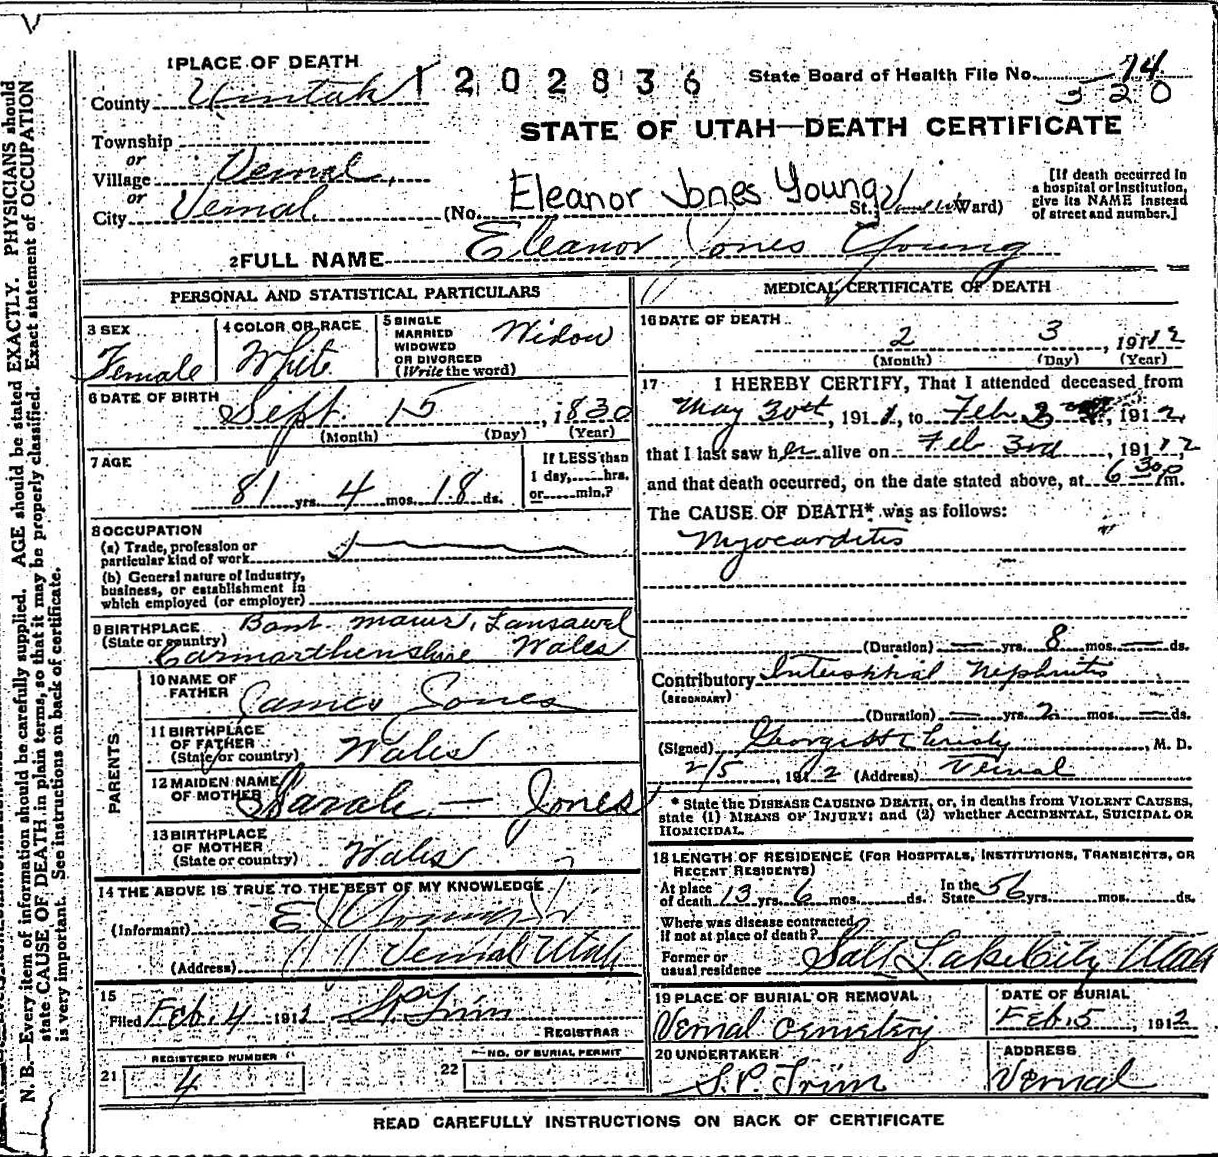 1 PLACE OF DEATH
1202836
State Board of Health File No. 14
320
County Uintah
STATE OF UTAH—DEATH CERTIFICATE
Township
or
Village Vernal
or
City Vernal
(No. Eleanor Jones Young St. Ward)
[If death occurred in
a hospital or institution,
give its NAME instead
of street and number.]
2 FULL NAME Eleanor Jones Young
PERSONAL AND STATISTICAL PARTICULARS
3 SEX
Female
4 COLOR OR RACE
White
5 SINGLE
MARRIED
WIDOWED
OR DIVORCED
(Write the word)
Widow
6 DATE OF BIRTH
Sept. 15, 1830
(Month) (Day) (Year)
7 AGE
81 yrs. 4 mos. 18 ds.
If LESS than
1 day, hrs.
or min.?
8 OCCUPATION
(a) Trade, profession or
particular kind of work
(b) General nature of Industry,
business, or establishment in
which employed (or employer)
9 BIRTHPLACE
(State or country)
mawr, Lansawel
Carmarthenshire Wales
PARENTS
10 NAME OF
FATHER
James Jones
11 BIRTHPLACE
OF FATHER
(State or country)
Wales
12 MAIDEN NAME
OF MOTHER
Sarah — Jones
13 BIRTHPLACE
OF MOTHER
(State or country)
Wales
14 THE ABOVE IS TRUE TO THE BEST OF MY KNOWLEDGE
(Informant) Young
(Address) Vernal Utah
15
Filed Feb. 4 1912 S.P. Trim
REGISTRAR
REGISTERED NUMBER
21 4
NO. OF BURIAL PERMIT
22
MEDICAL CERTIFICATE OF DEATH
16 DATE OF DEATH
2 3, 1912
(Month) (Day) (Year)
17 I HEREBY CERTIFY, That I attended deceased from
May 30th, 1911, to Feb 3, 1912,
that I last saw her alive on Feb 3rd, 1912,
and that death occurred, on the date stated above, at 6 30 p m.
The CAUSE OF DEATH* was as follows:
Myocarditis
(Duration) — yrs. 8 mos. — ds.
Contributory Interstitial Nephritis
(SECONDARY)
(Duration) — yrs. 2 mos. — ds.
(Signed) George H Christy, M. D.
2/5, 1912 (Address) Vernal
* State the DISEASE CAUSING DEATH, or, in deaths from VIOLENT CAUSES,
state (1) MEANS OF INJURY; and (2) whether ACCIDENTAL, SUICIDAL OR
HOMICIDAL.
18 LENGTH OF RESIDENCE (FOR HOSPITALS, INSTITUTIONS, TRANSIENTS, OR
RECENT RESIDENTS)
At place
of death 13 yrs. 6 mos. ds.
In the
State 56 yrs. mos. ds.
Where was disease contracted,
if not at place of death?
Former or
usual residence Salt Lake City Utah
19 PLACE OF BURIAL OR REMOVAL
Vernal Cemetery
DATE OF BURIAL
Feb. 5, 1912
20 UNDERTAKER
S.P. Trim
ADDRESS
Vernal
READ CAREFULLY INSTRUCTIONS ON BACK OF CERTIFICATE
N. B.—Every item of information should be carefully supplied. AGE should be stated EXACTLY. PHYSICIANS should
state CAUSE OF DEATH in plain terms, so that it may be properly classified. Exact statement of OCCUPATION
is very important. See instructions on back of certificate.